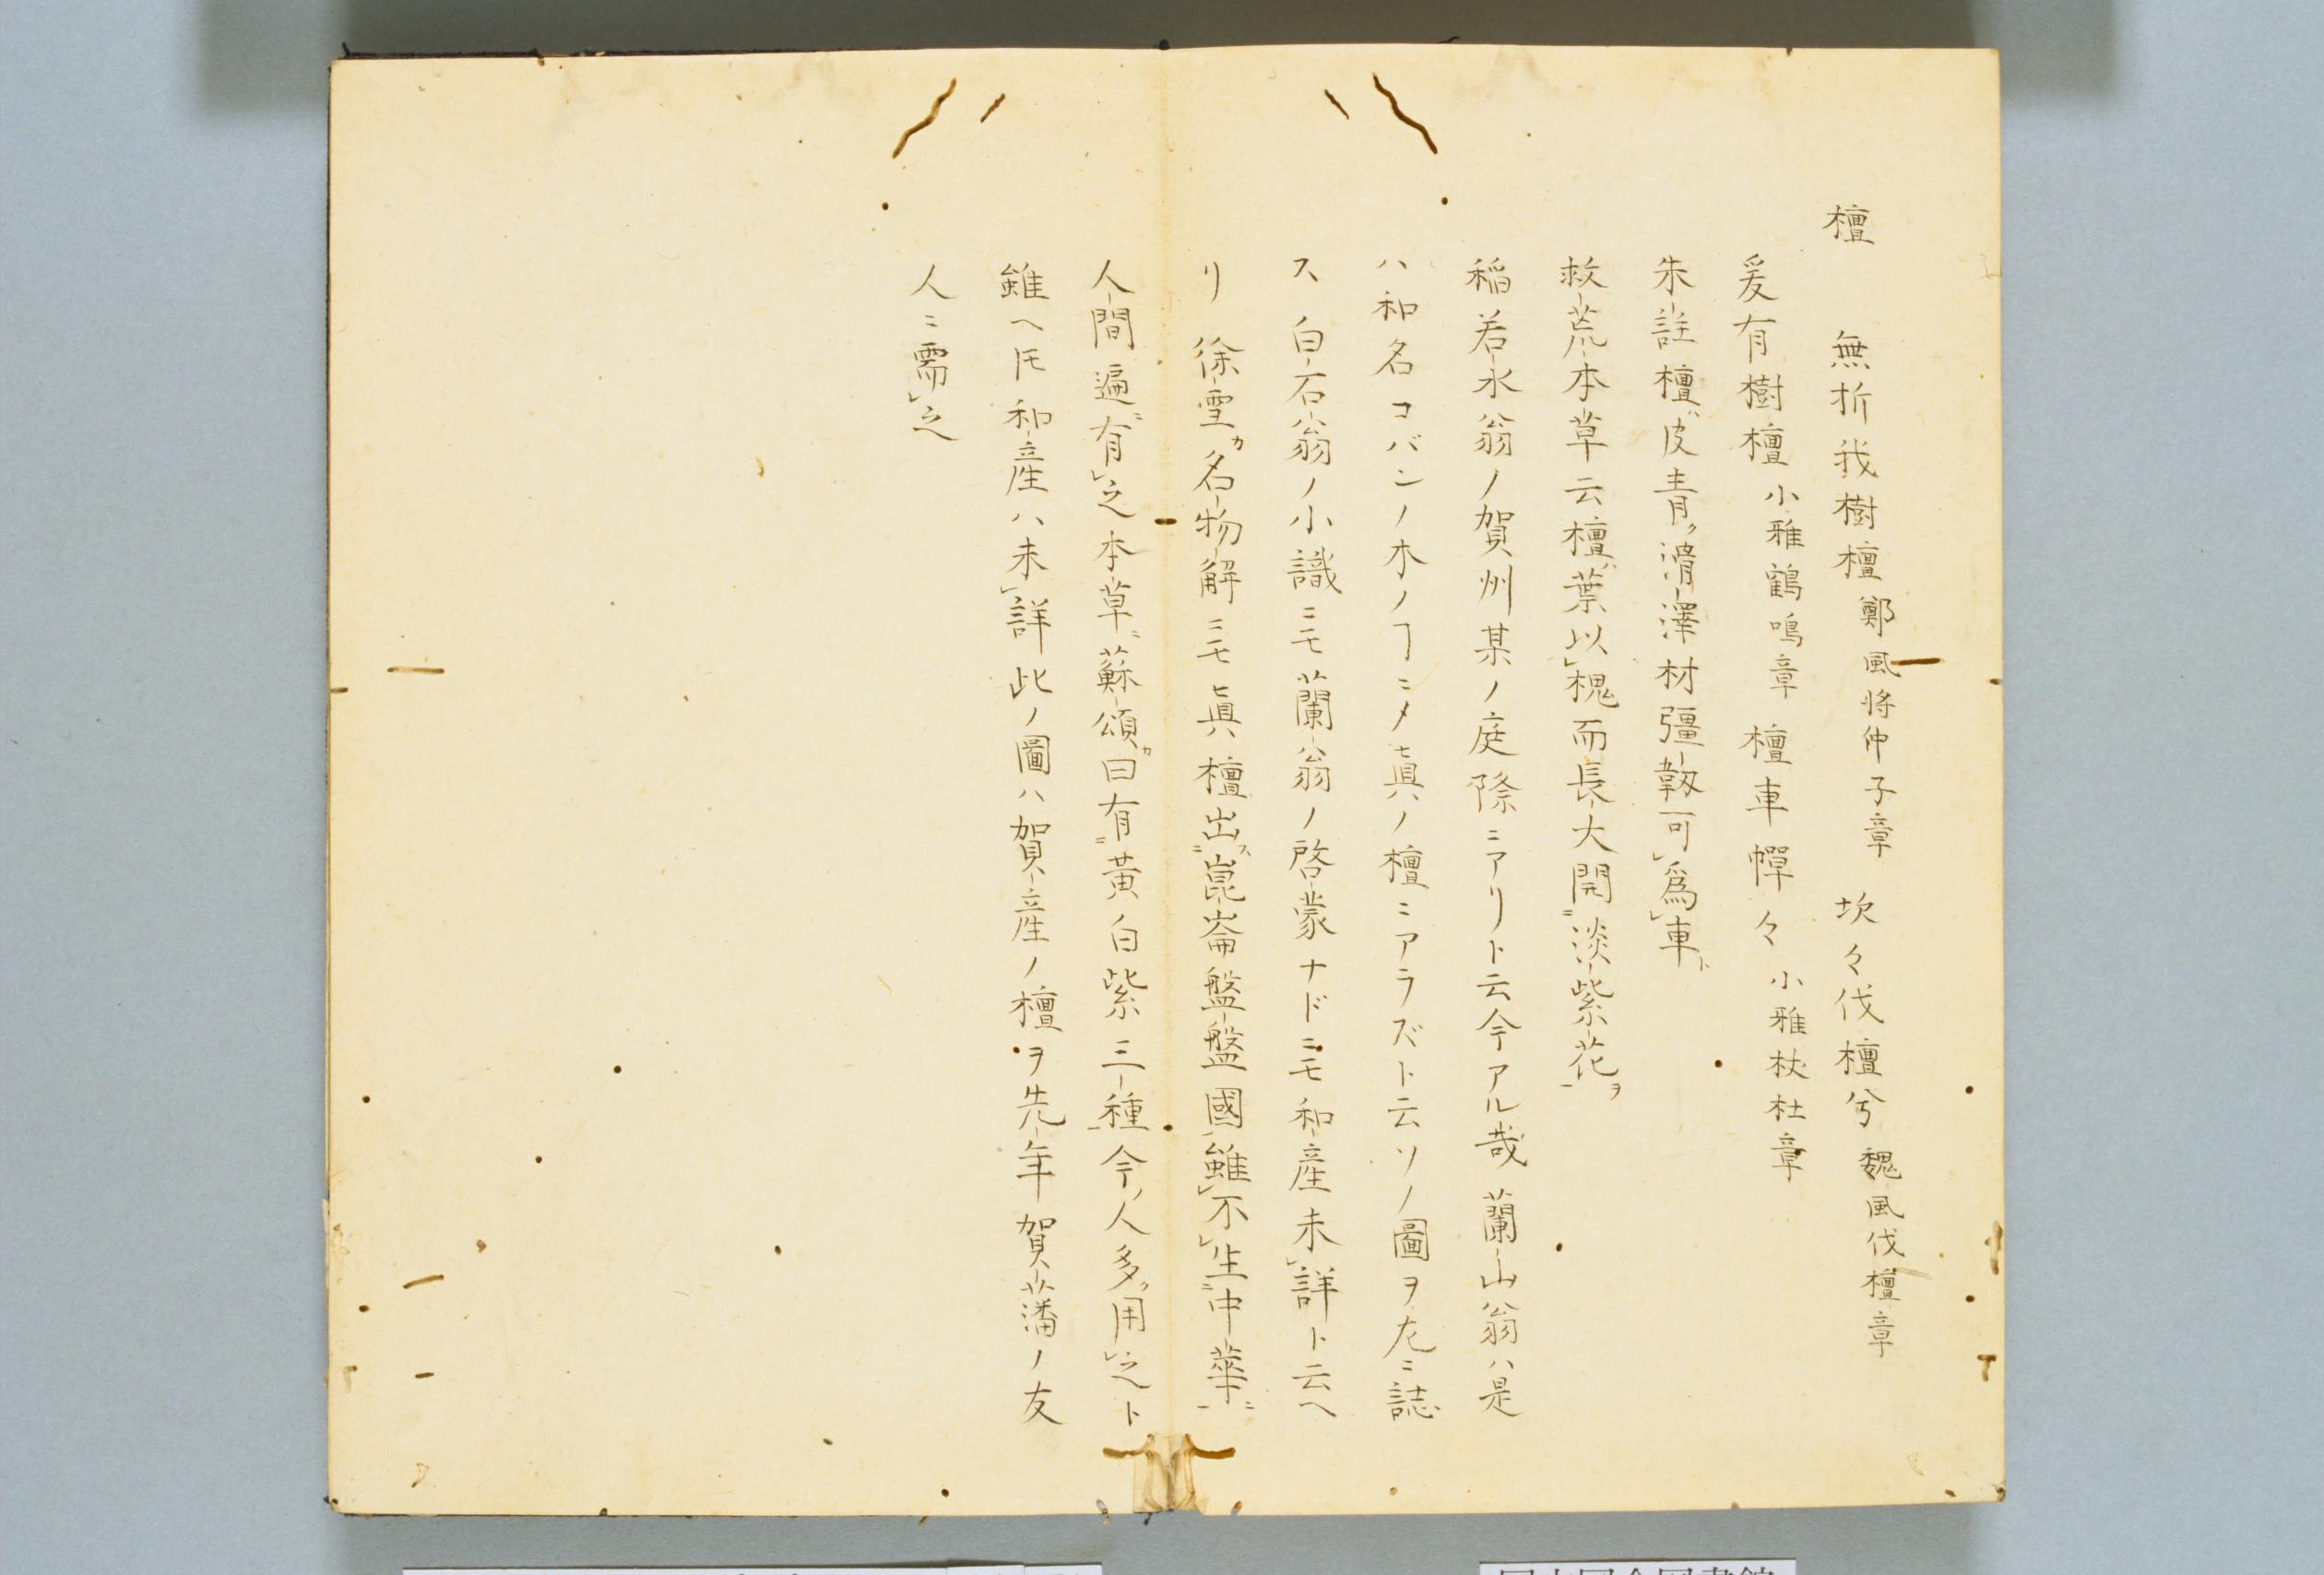 檀　無折我樹檀 鄭風将仲子章　坎々伐檀兮 魏風伐檀章
爰有樹檀 小雅鶴鳴章　檀車幝々 小雅杕杜章
朱註檀ハ皮青ク滑澤材彊韌可レ為レ車ト
救荒本草云檀ハ葉以レ槐而長大開二淡紫花一ヲ
稲若水翁ノ賀州某ノ庭際ニアリト云今アル哉 蘭山翁ハ是
ハ和名コバンノ木ノヿニ〆眞ノ檀ニアラズト云ソノ圖ヲ左ニ誌
ス 白石翁ノ小識ニモ蘭翁ノ啓蒙ナドニモ和産未レ詳ト云ヘ
リ 徐雪カ名物解ニモ眞檀出ス二崑崙盤盤國一雖レ不レ生二中華一ニ
人間遍ニ有レ之本草ニ蘇頌カ曰有二黄白紫三種一今ノ人多ク用レ之ト
雖ヘ𪜈和産ハ未レ詳此ノ圖ハ賀産ノ檀ヲ先年賀藩ノ友
人ニ需レ之